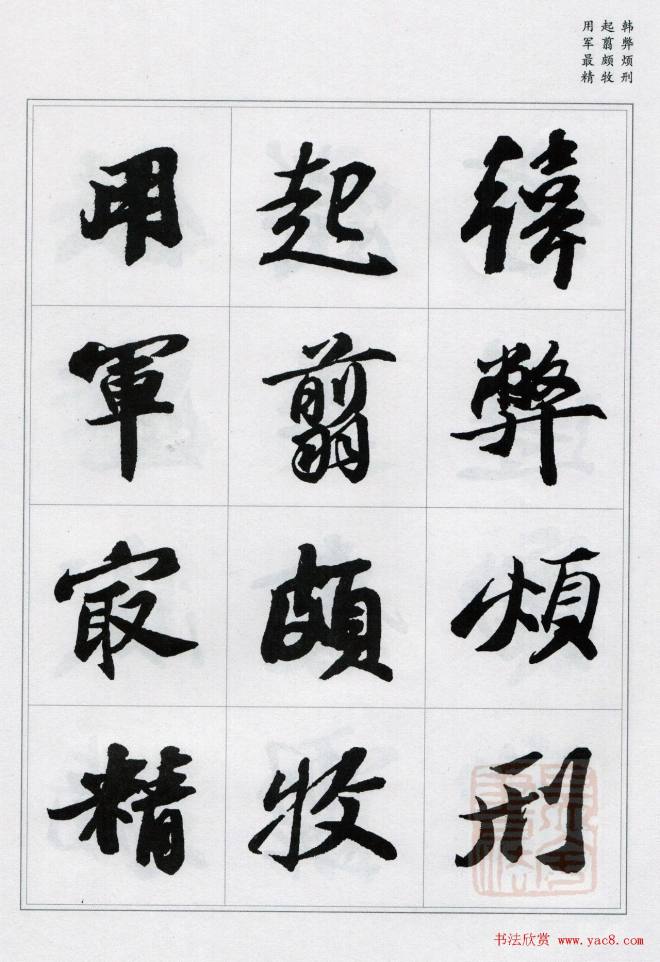 韩弊烦刑
起翦颇牧
用军最精
韓弊煩刑
起翦頗牧
用軍最精
书法欣赏 www.yac8.com